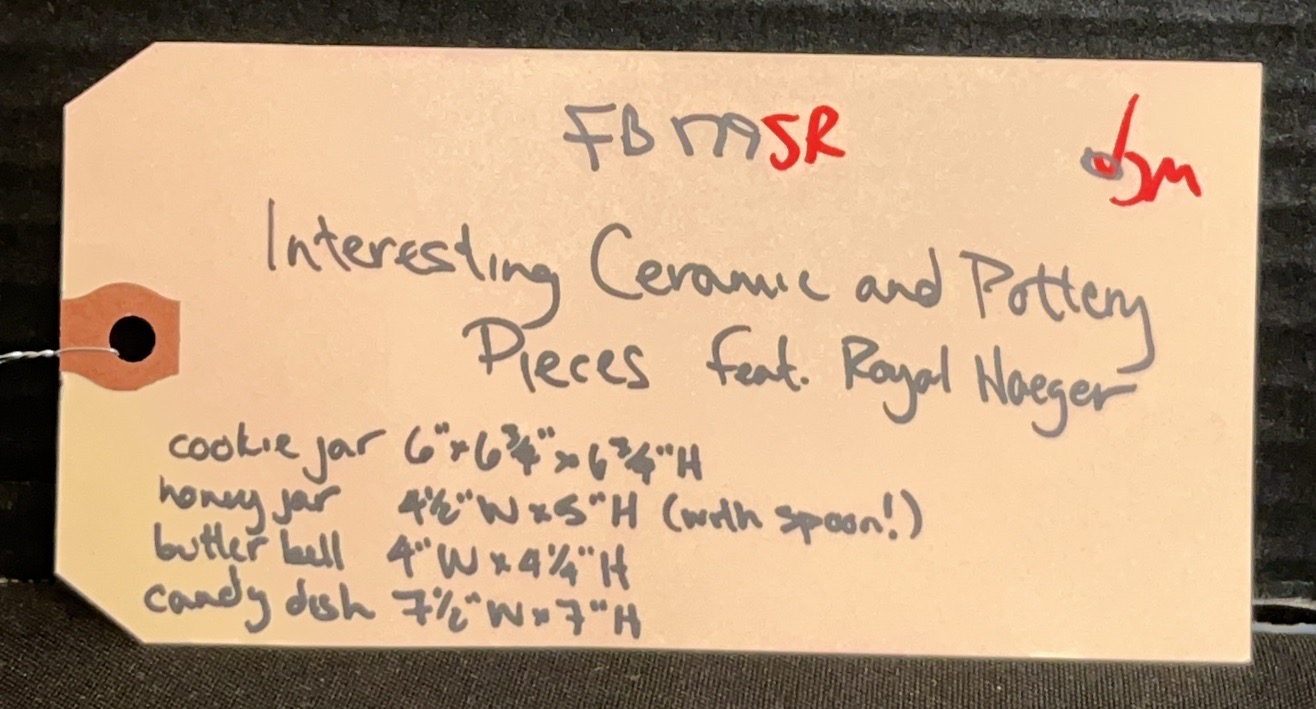 FB179SR
Interesting Ceramic and Pottery
Pieces feat. Royal Haeger
cookie jar 6"x6¾"x6¾"H
honey jar 4½"W x 5"H (with spoon!)
butter bell 4"W x 4¼"H
candy dish 7½"W x 7"H